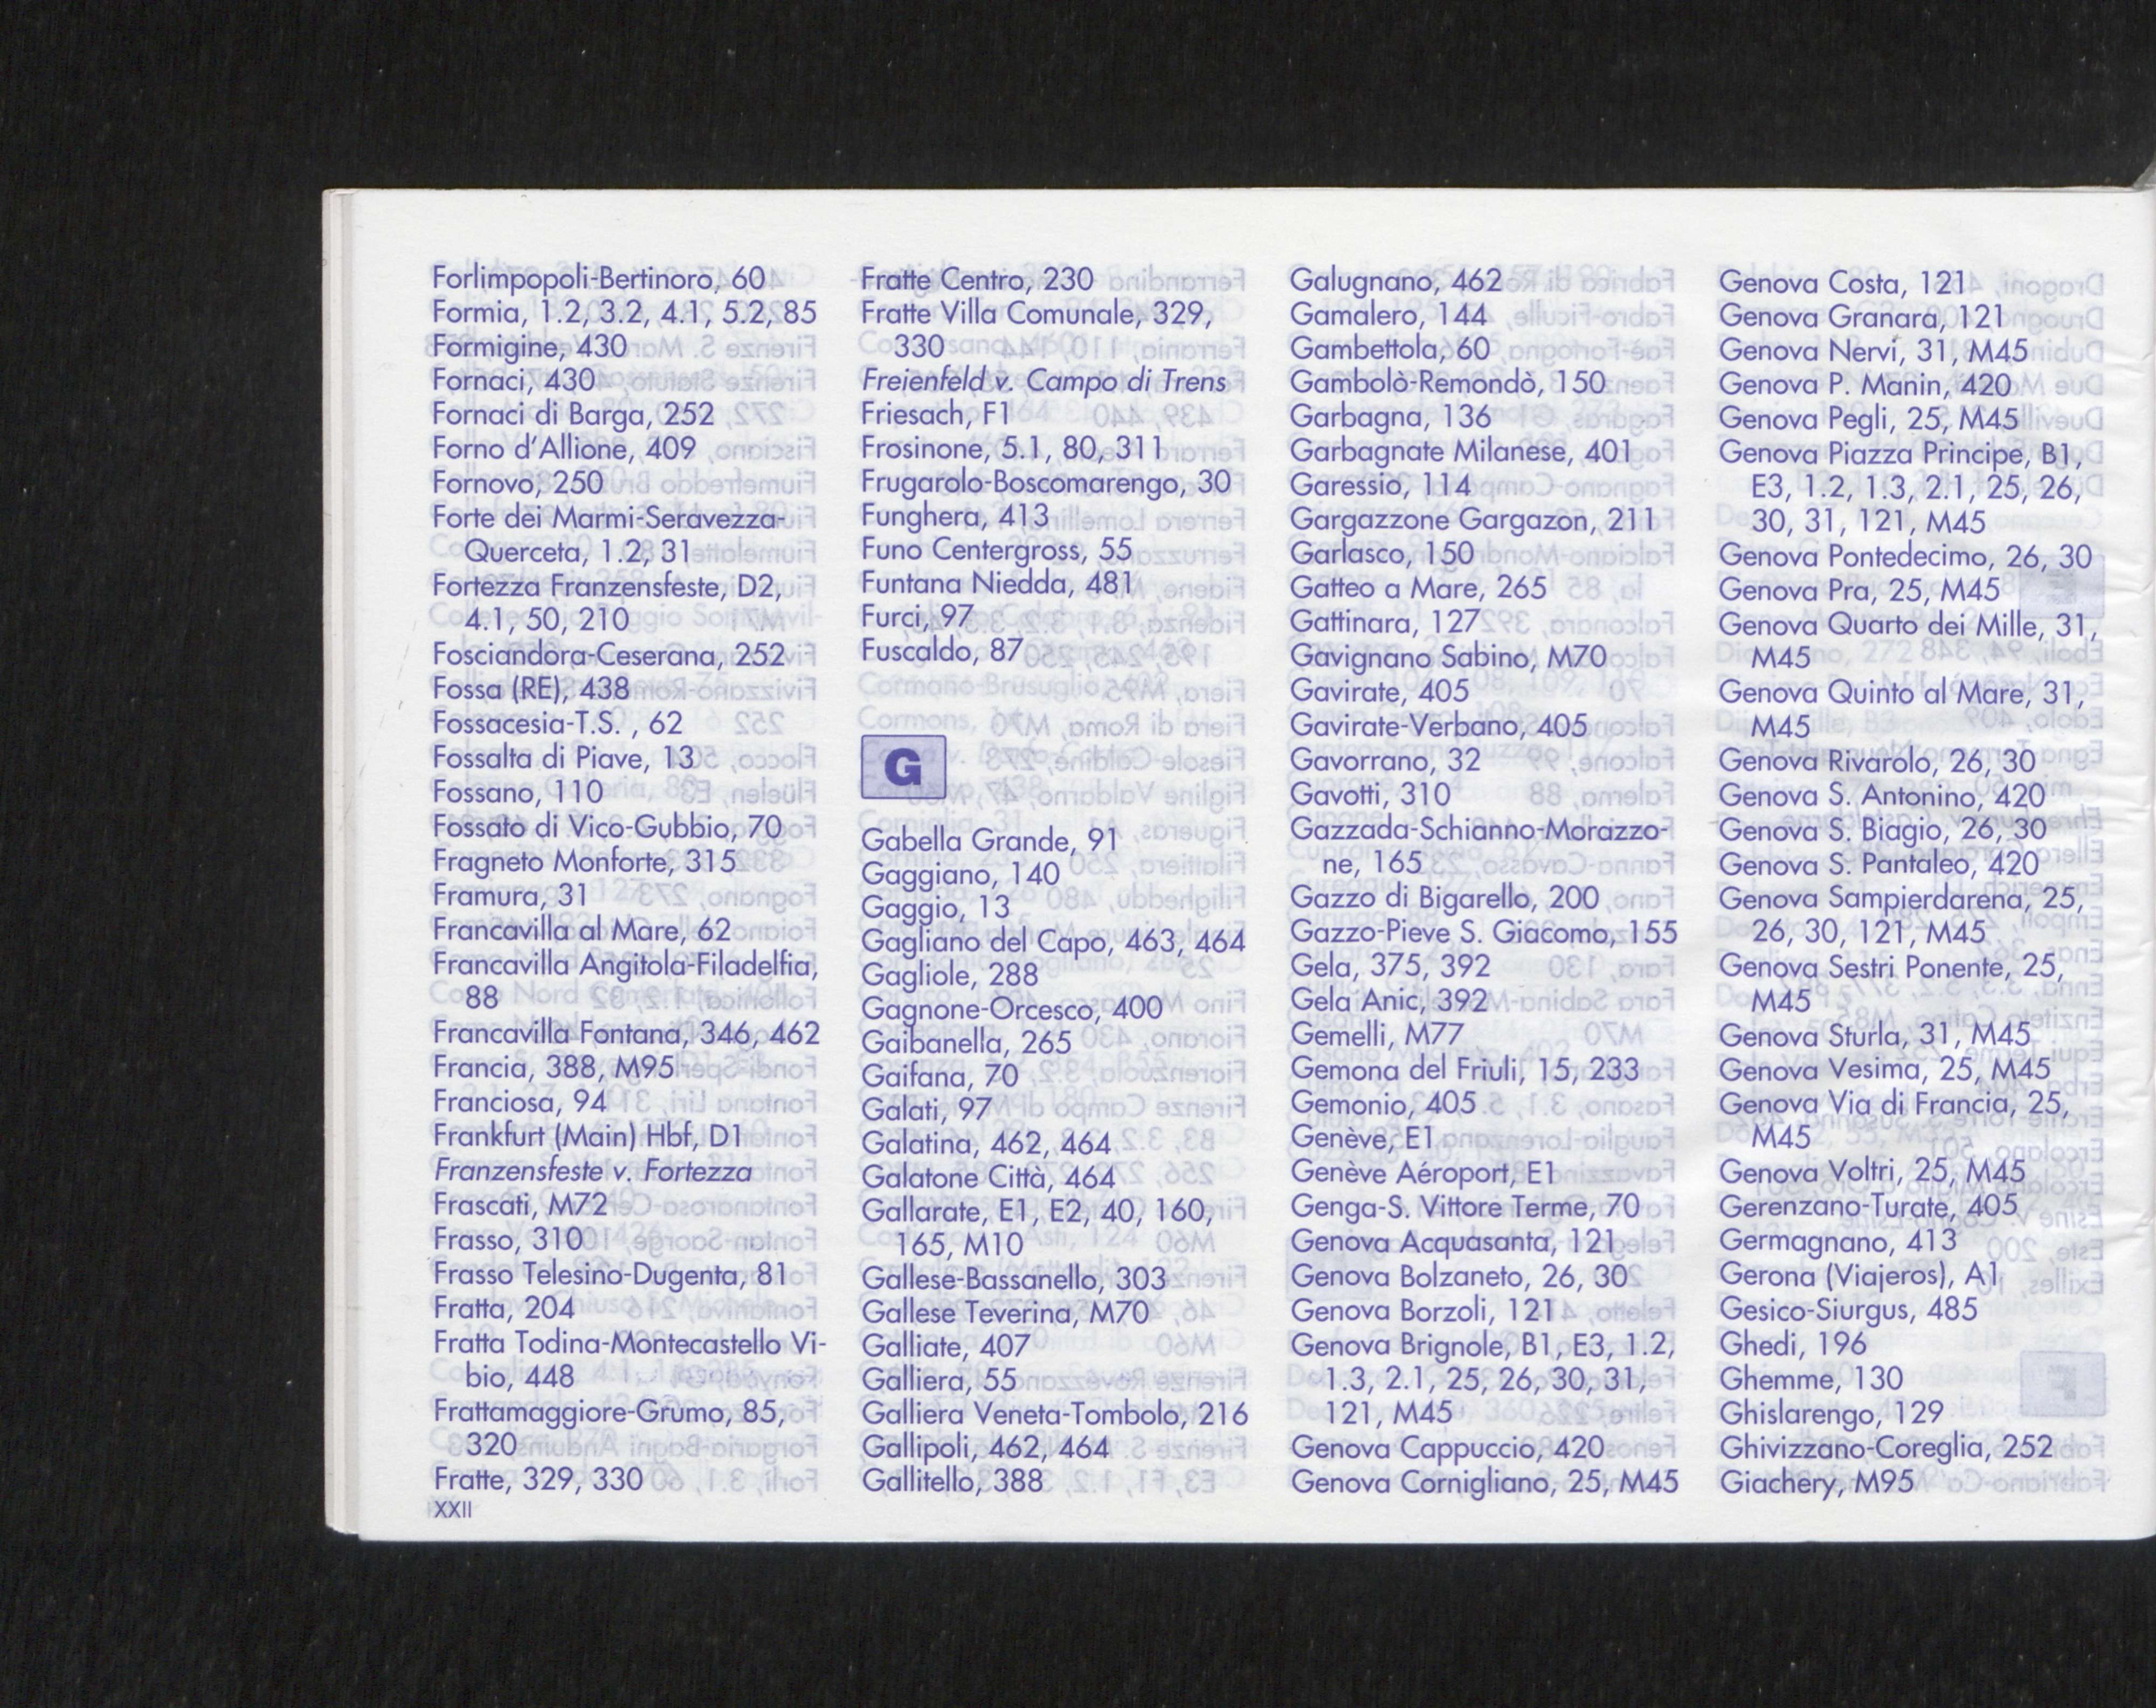 Forlimpopoli-Bertinoro, 60
Formia, 1.2, 3.2, 4.1, 5.2, 85
Formigine, 430
Fornaci, 430
Fornaci di Barga, 252
Forno d'Allione, 409
Fornovo, 250
Forte dei Marmi-Seravezza-
Querceta, 1.2, 31
Fortezza Franzensfeste, D2,
4.1, 50, 210
Fosciandora-Ceserana, 252
Fossa (RE), 438
Fossacesia-T.S. , 62
Fossalta di Piave, 13
Fossano, 110
Fossato di Vico-Gubbio, 70
Fragneto Monforte, 315
Framura, 31
Francavilla al Mare, 62
Francavilla Angitola-Filadelfia,
88
Francavilla Fontana, 346, 462
Francia, 388, M95
Franciosa, 94
Frankfurt (Main) Hbf, D1
Franzensfeste v. Fortezza
Frascati, M72
Frasso, 310
Frasso Telesino-Dugenta, 81
Fratta, 204
Fratta Todina-Montecastello Vi-
bio, 448
Frattamaggiore-Grumo, 85,
320
Fratte, 329, 330
XXII
Fratte Centro, 230
Fratte Villa Comunale, 329,
330
Freienfeld v. Campo di Trens
Friesach, F1
Frosinone, 5.1, 80, 311
Frugarolo-Boscomarengo, 30
Funghera, 413
Funo Centergross, 55
Funtana Niedda, 481
Furci, 97
Fuscaldo, 87
G
Gabella Grande, 91
Gaggiano, 140
Gaggio, 13
Gagliano del Capo, 463, 464
Gagliole, 288
Gagnone-Orcesco, 400
Gaibanella, 265
Gaifana, 70
Galati, 97
Galatina, 462, 464
Galatone Città, 464
Gallarate, E1, E2, 40, 160,
165, M10
Gallese-Bassanello, 303
Gallese Teverina, M70
Galliate, 407
Galliera, 55
Galliera Veneta-Tombolo, 216
Gallipoli, 462, 464
Gallitello, 388
Galugnano, 462
Gamalero, 144
Gambettola, 60
Gambolò-Remondò, 150
Garbagna, 136
Garbagnate Milanese, 401
Garessio, 114
Gargazzone Gargazon, 211
Garlasco, 150
Gatteo a Mare, 265
Gattinara, 127
Gavignano Sabino, M70
Gavirate, 405
Gavirate-Verbano, 405
Gavorrano, 32
Gavotti, 310
Gazzada-Schianno-Morazzo-
ne, 165
Gazzo di Bigarello, 200
Gazzo-Pieve S. Giacomo, 155
Gela, 375, 392
Gela Anic, 392
Gemelli, M77
Gemona del Friuli, 15, 233
Gemonio, 405
Genève, E1
Genève Aéroport, E1
Genga-S. Vittore Terme, 70
Genova Acquasanta, 121
Genova Bolzaneto, 26, 30
Genova Borzoli, 121
Genova Brignole, B1, E3, 1.2,
1.3, 2.1, 25, 26, 30, 31,
121, M45
Genova Cappuccio, 420
Genova Cornigliano, 25, M45
Genova Costa, 121
Genova Granara, 121
Genova Nervi, 31, M45
Genova P. Manin, 420
Genova Pegli, 25, M45
Genova Piazza Principe, B1,
E3, 1.2, 1.3, 2.1, 25, 26,
30, 31, 121, M45
Genova Pontedecimo, 26, 30
Genova Pra, 25, M45
Genova Quarto dei Mille, 31,
M45
Genova Quinto al Mare, 31,
M45
Genova Rivarolo, 26, 30
Genova S. Antonino, 420
Genova S. Biagio, 26, 30
Genova S. Pantaleo, 420
Genova Sampierdarena, 25,
26, 30, 121, M45
Genova Sestri Ponente, 25,
M45
Genova Sturla, 31, M45
Genova Vesima, 25, M45
Genova Via di Francia, 25,
M45
Genova Voltri, 25, M45
Gerenzano-Turate, 405
Germagnano, 413
Gerona (Viajeros), A1
Gesico-Siurgus, 485
Ghedi, 196
Ghemme, 130
Ghislarengo, 129
Ghivizzano-Coreglia, 252
Giachery, M95